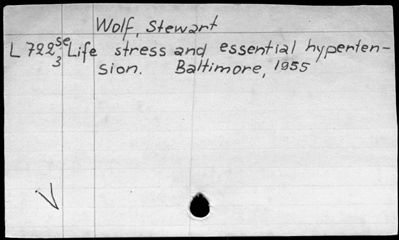 Wolf, Stewart
L 722se Life stress and essential hyperten-
3 sion. Baltimore, 1955